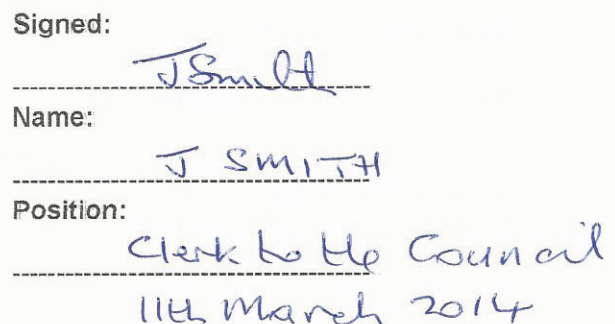 Signed:
JSmith
Name:
J SMITH
Position:
Clerk to the Council
11th March 2014